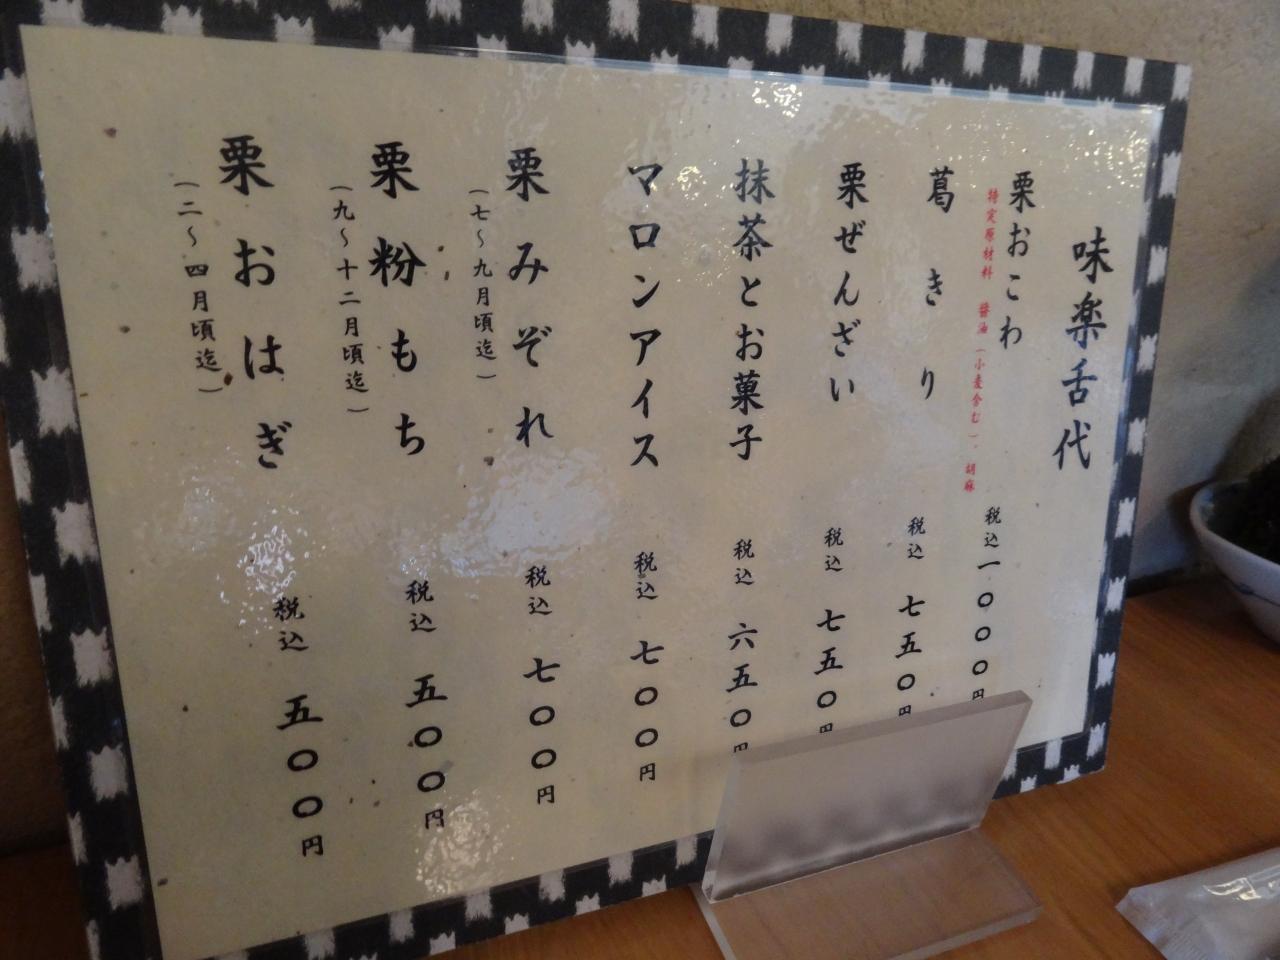 味楽舌代
栗おこわ 税込 一〇〇〇円
特定原材料 醤油(小麦含む)、胡麻
葛きり 税込 七五〇円
栗ぜんざい 税込 七五〇円
抹茶とお菓子 税込 六五〇円
マロンアイス 税込 七〇〇円
栗みぞれ 税込 七〇〇円
(七〜九月頃迄)
栗粉もち 税込 五〇〇円
(九〜十二月頃迄)
栗おはぎ 税込 五〇〇円
(二〜四月頃迄)